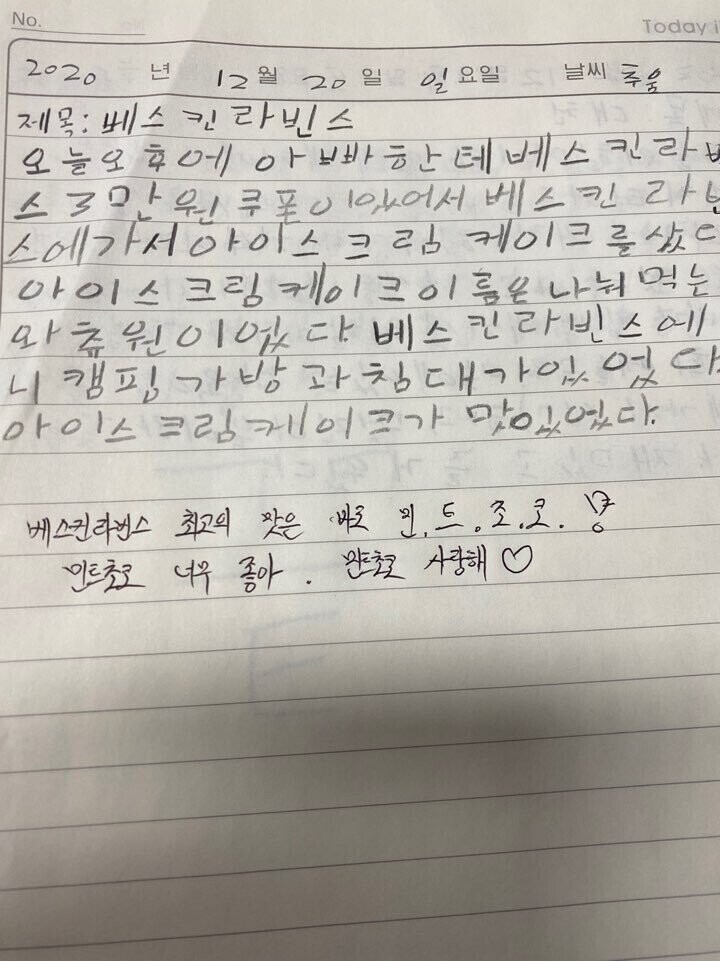 No.
Today i
2020 년 12 월 20 일 일 요일 날씨 추움
제목: 베스킨라빈스
오늘오후에 아빠한테베스킨라
스 3만원쿠폰이있어서 베스킨라빈
스에가서아이스크림 케이크를샀다
아이스크림케이크이름은 나눠먹는
와츄원이었다. 베스킨라빈스에
니 캠핑가방과침대가있었다
아이스크림케이크가 맛있었다.
베스킨라빈스 최고의 맛은 바로 민.트.초.코.
민트초코 너무 좋아. 민트초코 사랑해♡